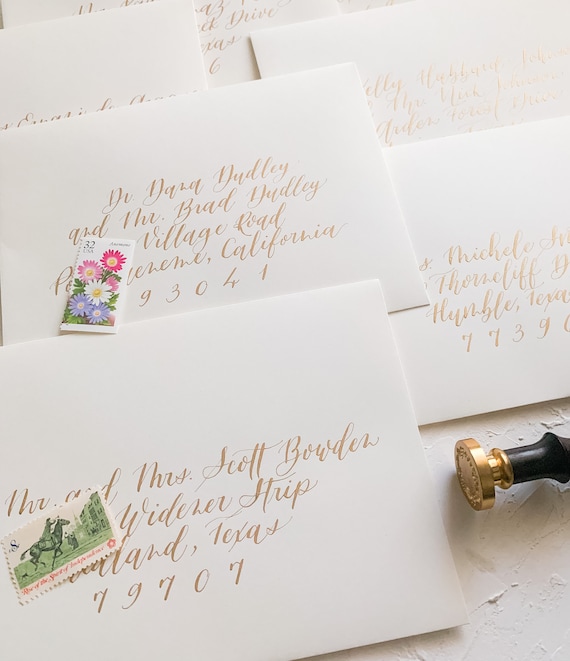 ck Drive
Texas
6
Kelly Hubbard John
Mr. Nick Johnson
Arden Forest Drive
Dr Dana Dudley
and Mr. Brad Dudley
Village Road
eneme, California
93041
32
USA
Anemone
s. Michele
Thorncliff D
Humble, Texas
7739
Mr. and Mrs. Scott Bowden
Widener Strip
land, Texas
79707
8c
Rise of the Spirit of Independence